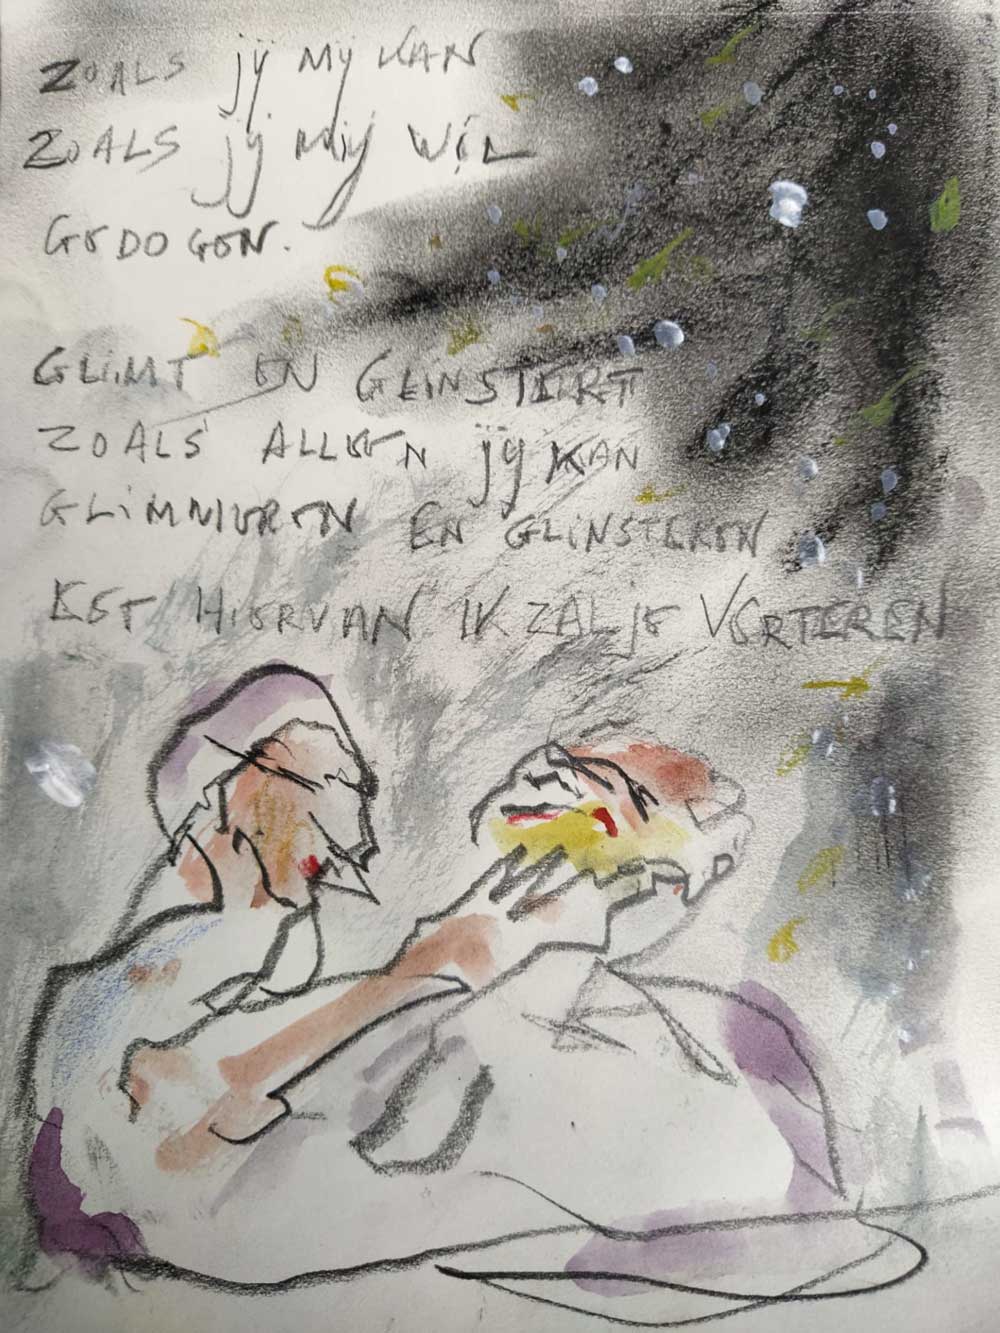 ZOALS jij Mij KAN
ZOALS jij Mij WiL
GEDOGEN.
GLiMT EN GLiNSTERT
ZOALS ALLEEN jij KAN
GLiMMEREN EN GLiNSTEREN
EET HiERVAN iK ZAL jE VERTEREN